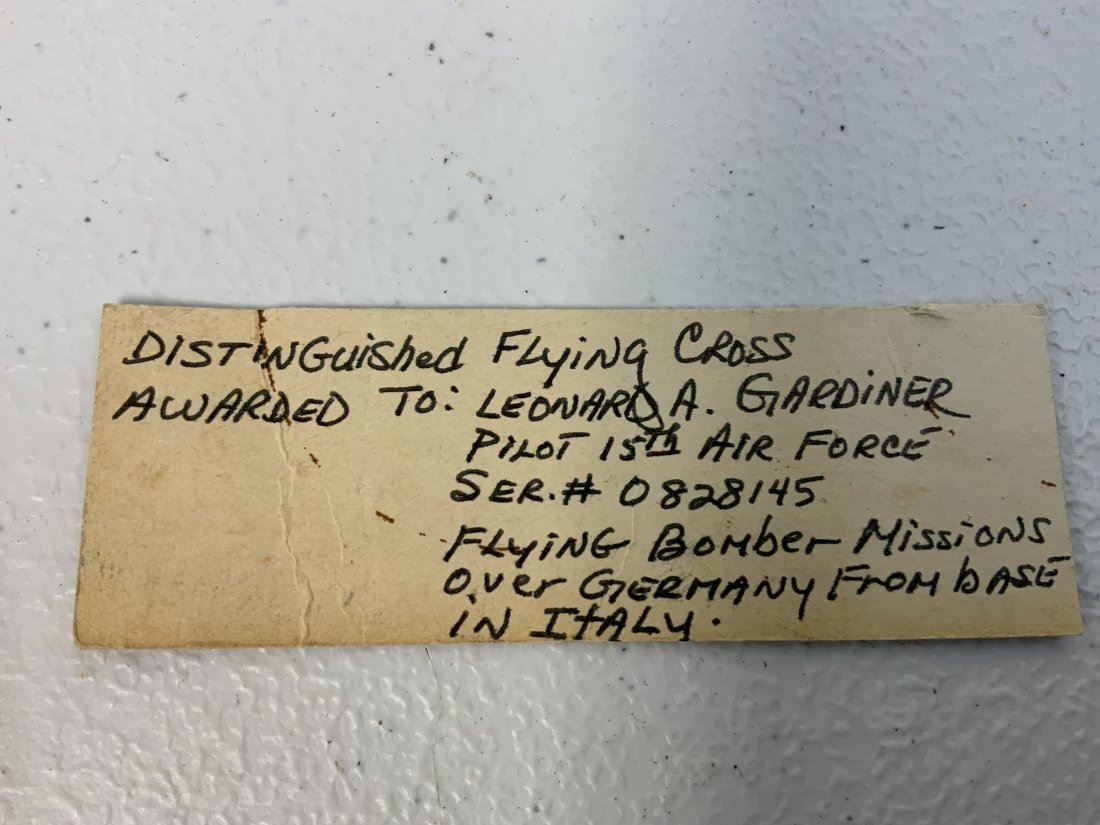 DISTINGuished FLying CROSS
AWARDED TO: LEONARD A. GARDINER
PILOT 15th AIR FORCE
SER.# 0828145
FLyING BomberMissiONS
Over GERMANY From bASE
iN ItALY.